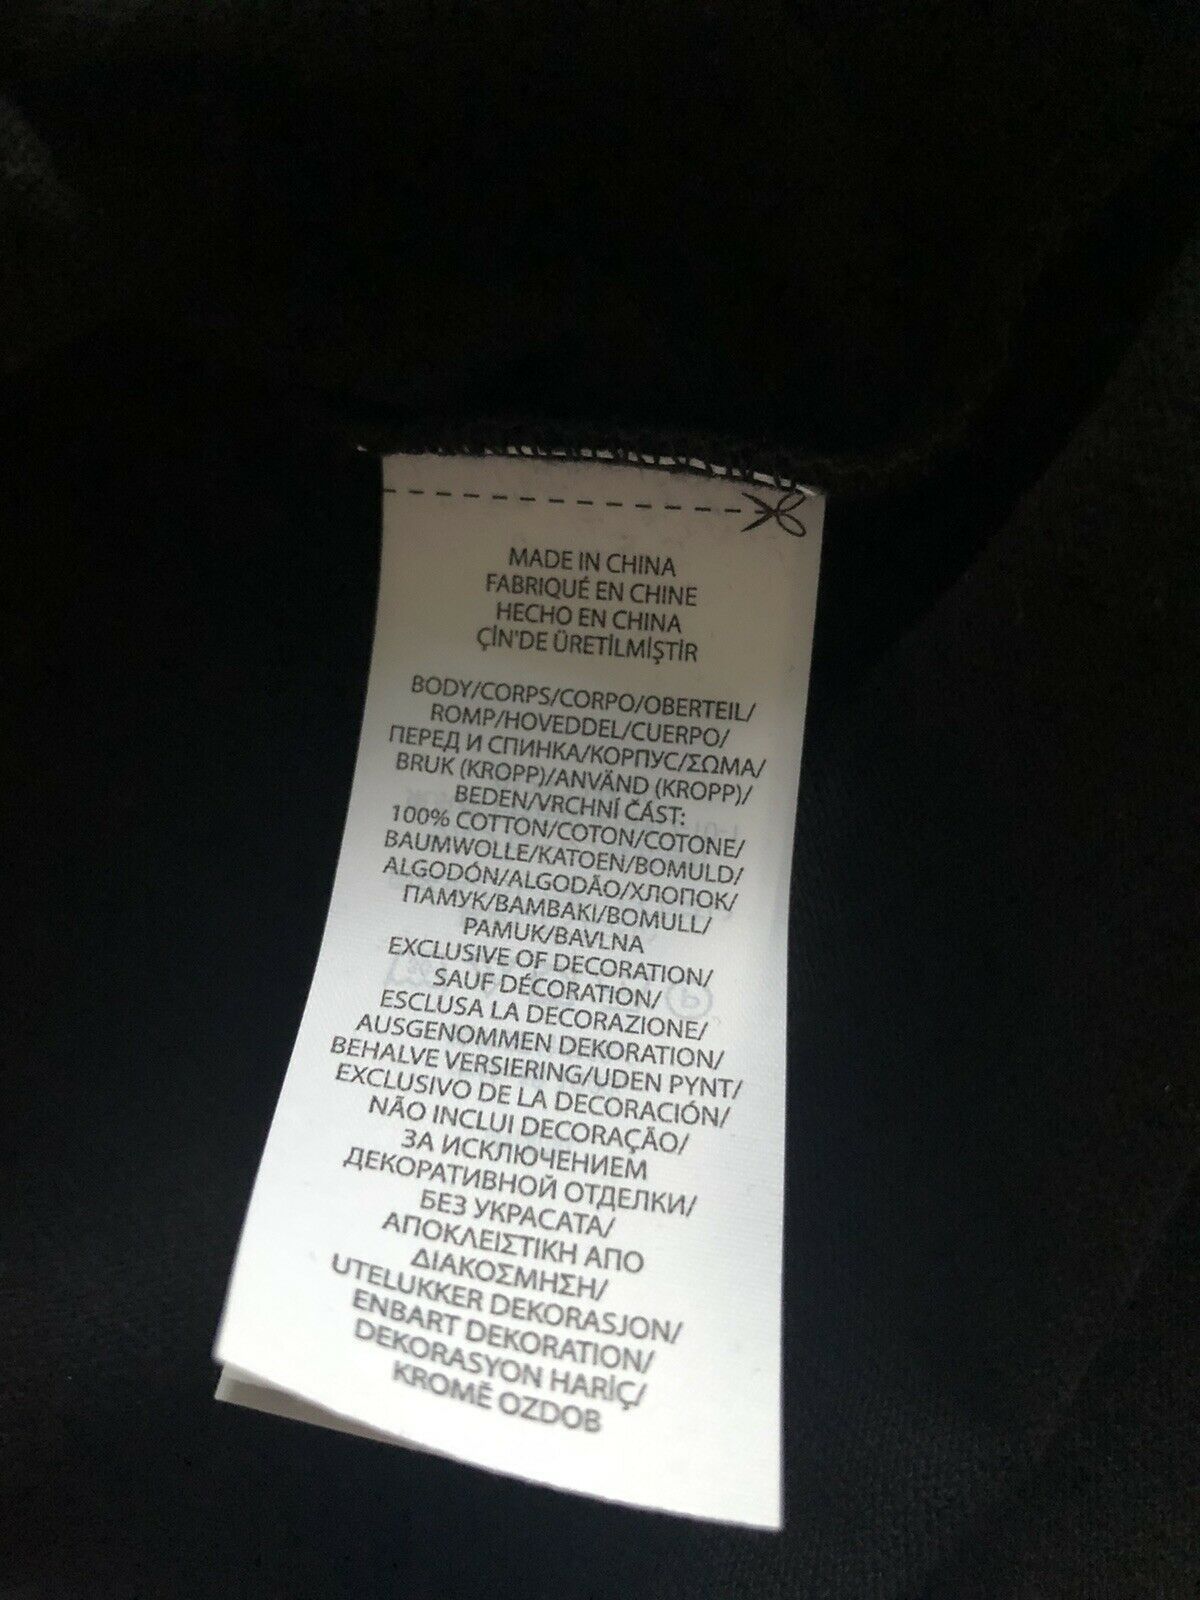 MADE IN CHINA
FABRIQUÉ EN CHINE
HECHO EN CHINA
ÇİN'DE ÜRETİLMİŞTİR
BODY/CORPS/CORPO/OBERTEIL/
ROMP/HOVEDDEL/CUERPO/
ПЕРЕД И СПИНКА/КОРПУС/ΣΩΜΑ/
BRUK (KROPP)/ANVÄND (KROPP)/
BEDEN/VRCHNÍ ČÁST:
100% COTTON/COTON/COTONE/
BAUMWOLLE/KATOEN/BOMULD/
ALGODÓN/ALGODÃO/ХЛОПОК/
ПАМУК/ΒΑΜΒΑΚΙ/BOMULL/
PAMUK/BAVLNA
EXCLUSIVE OF DECORATION/
SAUF DÉCORATION/
ESCLUSA LA DECORAZIONE/
AUSGENOMMEN DEKORATION/
BEHALVE VERSIERING/UDEN PYNT/
EXCLUSIVO DE LA DECORACIÓN/
NÃO INCLUI DECORAÇÃO/
ЗА ИСКЛЮЧЕНИЕМ
ДЕКОРАТИВНОЙ ОТДЕЛКИ/
БЕЗ УКРАСАТА/
ΑΠΟΚΛΕΙΣΤΙΚΗ ΑΠΟ
ΔΙΑΚΟΣΜΗΣΗ/
UTELUKKER DEKORASJON/
ENBART DEKORATION/
DEKORASYON HARİÇ/
KROMĚ OZDOB